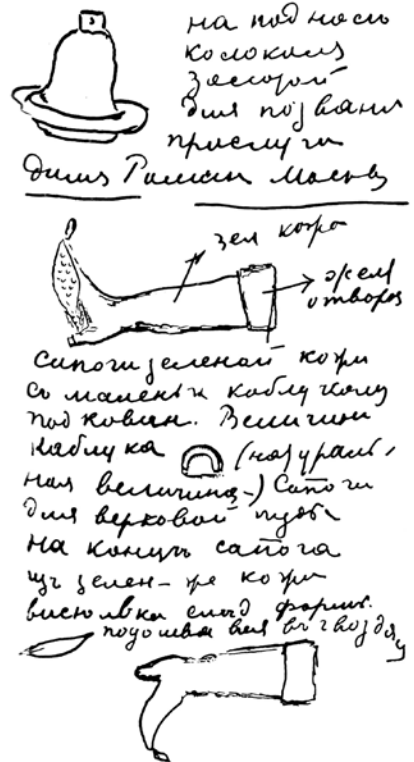 на подносѣ
колокола
для позвани
прислуги
зел кожа
желт
отворот
сапоги зеленой кожи
съ маленьк каблучком
подкован. Величина
каблука (натураль,
ная величина-) Сапоги
для верховой
на концѣ сапога
изъ зелен-же кожи
висюлька форм.
подошва вся въ гвоздях